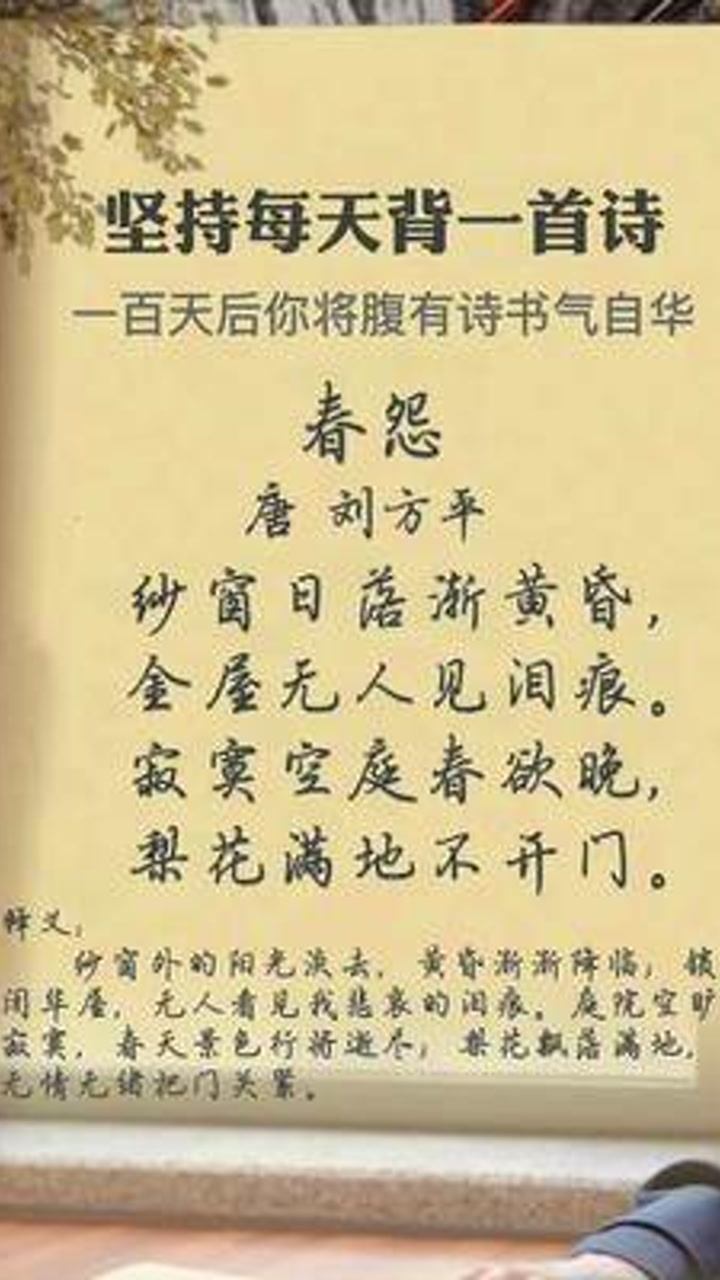 坚持每天背一首诗
一百天后你将腹有诗书气自华
春怨
唐 刘方平
纱窗日落渐黄昏，
金屋无人见泪痕。
寂寞空庭春欲晚，
梨花满地不开门。
释义：
纱窗外的阳光淡去，黄昏渐渐降临；锁
闭华屋，无人看见我悲哀的泪痕。庭院空旷
寂寞，春天景色行将逝尽；梨花飘落满地，
无情无绪把门关紧。